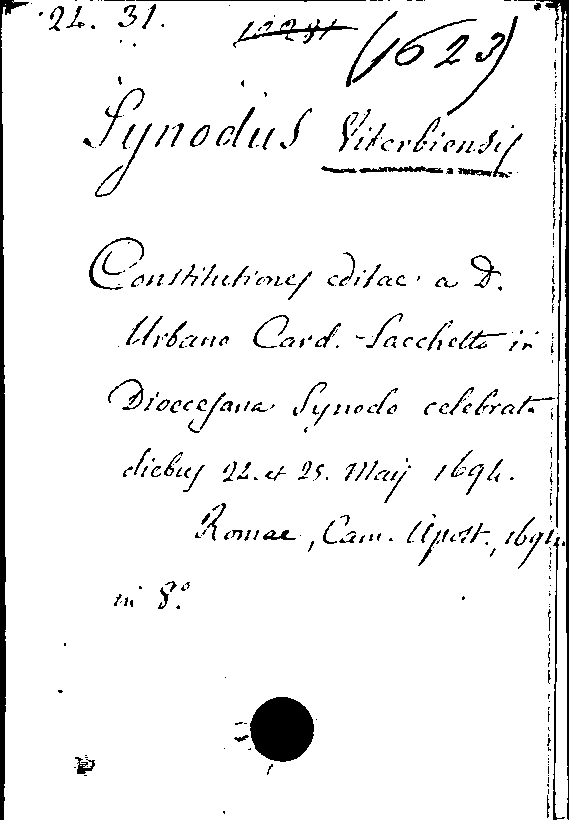 22. 31.
(1623)
Synodus Viterbiensis
Constitutiones editae a D.
Urbano Card. Sacchetto in
Dioecesana Synodo celebrata
diebus 22. et 25. Maij 1694.
Romae, Cam. Apost., 1694.
in 8.º